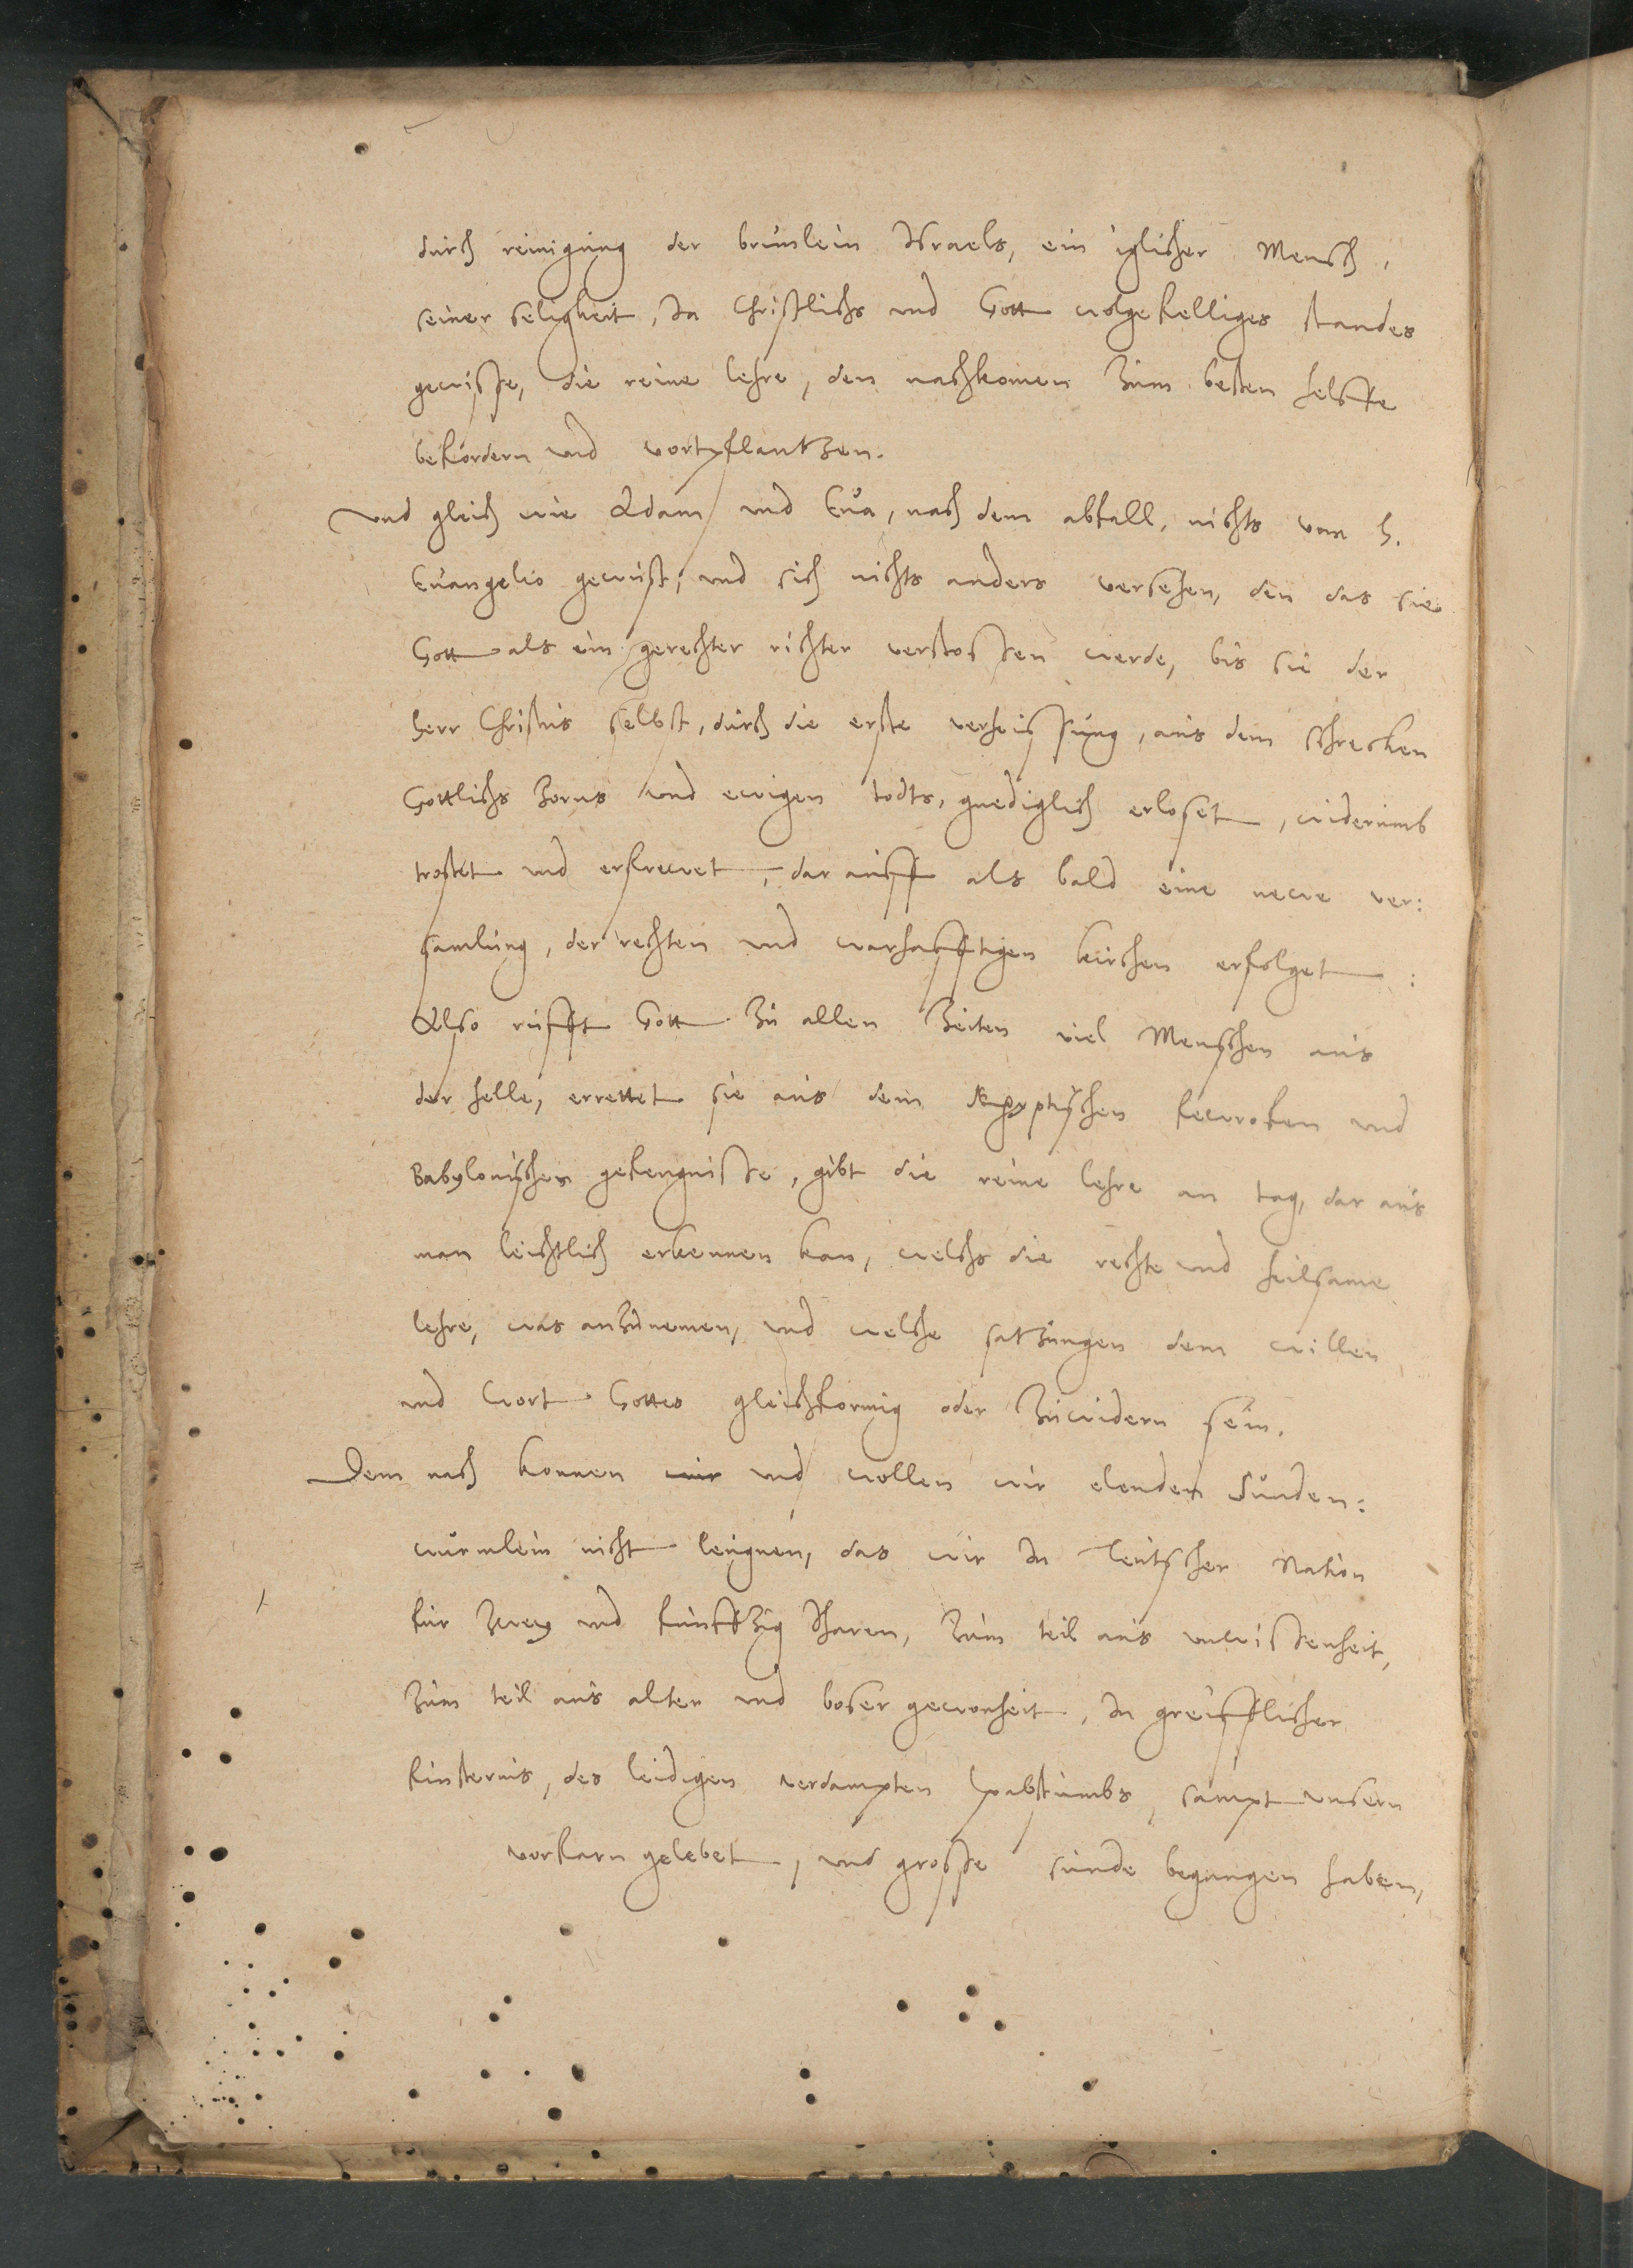 durch reinigung der brunlein Israels, ein iglicher Mensch,
seiner seligkeit, In Christlichs und Gott wolgefelliges standes
gewisse, die reine lehre, den nachkomen zum besten helffe
befördern und vortpflantzen.
Und gleich wie Adam und Eua, nach dem abfall, nichts vom h.
Euangelio gewust, und sich nichts anders versehen, den das sie
Gott als ein gerechter richter verstossen werde, bis sie der
herr Christus selbst, durch die erste verheissung, aus dem schrecken
Gottlichs zorns und ewigen todts, gnediglich erloset, widerumb
trostet und erfrewet, dar auff als bald eine newe ver:
samlung, der rechten und warhafftigen kirchen erfolget :
Also rufft Gott zu allen Zeiten viel Menschen aus
der helle, errettet sie aus dem Aegyptischen fewrofen und
Babylonischen gefengnisse, gibt die reine lehre an tag, dar aus
man leichtlich erkennen kan, welchs die rechte und heilsame
lehre, was anzunemen, und welche satzungen dem willen
und Wort Gottes gleichformig oder zuwidern sein.
Dem nach konnen wir und wollen wir elenden sunden:
würmlein nicht leugnen, das wir In Teutscher Nation
für zwey und funffzig Iharen, zum teil aus unwissenheit,
zum teil aus alter und boser gewonheit, In greifflicher
finsternis, des leidigen verdampten pabstumbs, sampt unsern
vorfarn gelebet, und grosse sunde begangen haben,